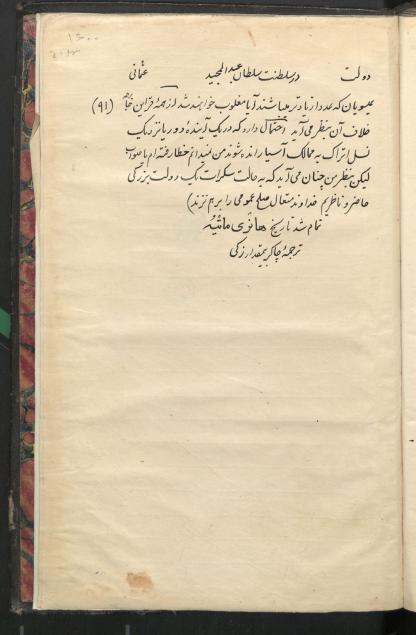 ۱۳۰۰
دولت در سلطنت سلطان عبدالمجید عثمانی
عیسویان که عددا زیادتر میباشند آیا مغلوب خواهند شد از همهٔ قراین ظاهر (۹۱)
خلاف آن بنظر می آید احتمال دارد که در یک آیندهٔ دور یا نزدیک
نسل اتراک به ممالک آسیا رانده شوند من نمیدانم خطا رفته ام یا صواب
لیکن بنظر من چنان می آید که به حالت سکرات یک دولت بزرگی
حاضر و ناظریم خداوند متعال صلح عمومی را برهم نزند)
تمام شد تاریخ هانوی مانتیه
ترجمهٔ چاکر بیمقدار زکی